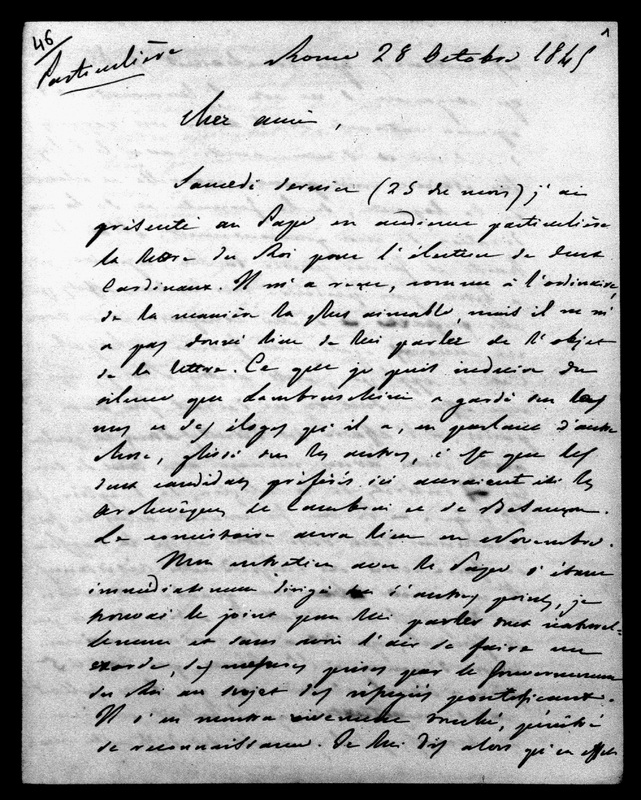 46
Particulière
1
Rome 28 Octobre 1845
Cher ami,
Samedi dernier (25 du mois) j'ai
présenté au Pape en audience particulière
la lettre du Roi pour l'élection de deux
Cardinaux. Il m'a reçu, comme à l'ordinaire,
de la manière la plus aimable, mais il ne m'
a pas donné lieu de lui parler de l'objet
de la lettre. Ce que je puis induire du
silence que Lambruschini a gardé sur les
uns et des éloges qu'il a, en parlant d'autre
chose, glissé sur les autres, c'est que les
deux candidats préférés ici auraient été les
Archevêques de Cambrai et de Besançon.
Le consistoire aura lieu en Novembre.
Mon entretien avec le Pape s'étant
immédiatement dirigé sur d'autres points, je
trouvai le joint pour lui parler tout naturel-
lement et sans avoir l'air de faire un
exorde, des mesures prises par le Gouvernement
du Roi au sujet des réfugiés pontificaux.
Il s'en montra vivement touché, pénétré
de reconnaissance. Je lui dis alors qu'en effet